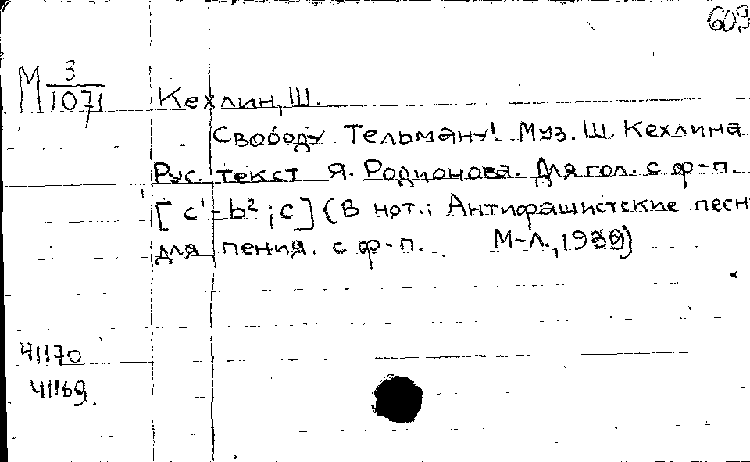 609
М 3/1071
Кехлин, Ш.
Свободу Тельману! Муз. Ш. Кехлина
Рус. текст Я. Родионова. Для гол. с ф-п.
[c¹-b²; c] (В нот.: Антифашистские песн
для пения. с ф-п. М-Л., 1939)
41170
41169.